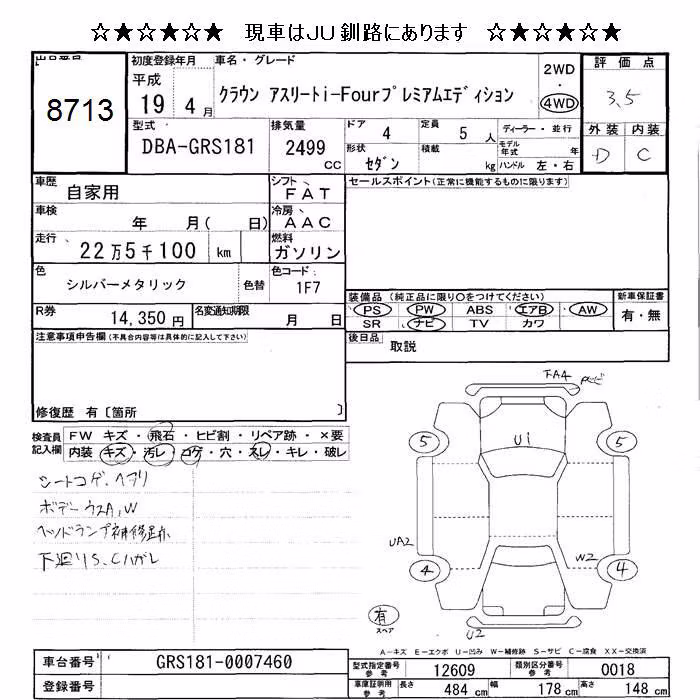 ☆★☆★☆★ 現車はJU釧路にあります ★☆★☆★☆
出品番号
8713
初度登録年月
平成
19 4 月
車名・グレード
クラウン アスリートi-Fourプレミアムエディション
2WD
・
4WD
評価点
3,5
外装 内装
D C
型式
DBA-GRS181
排気量
2499
CC
ドア 4
定員 5 人
形状 セダン
積載 kg
ディーラー・並行
モデル年式 年
ハンドル 左・右
車歴
自家用
シフト
FAT
車検
年 月( 日)
冷房
AAC
走行
22万5千100 km
燃料
ガソリン
色
シルバーメタリック
色替
色コード
1F7
R券
14,350 円
名変通知期限
月 日
セールスポイント(正常に機能するものに限ります)
装備品 (純正品に限り○をつけてください)
PS ・ PW ・ ABS ・ エアB ・ AW ・
SR ・ ナビ ・ TV ・ カワ
新車保証書
有・無
後日品
取説
注意事項申告欄(不具合内容等は具体的に記入して下さい)
修復歴 有〔箇所 〕
検査員記入欄
FW キズ・飛石・ヒビ割・リペア跡・×要
内装 キズ・汚レ・コゲ・穴・スレ・キレ・破レ
シートコゲ、ヘタリ
ボデーウスA,W
下廻りS、Cハガレ
FA4
Ui
5
5
UA2
W2
4
4
U2
有
スペア
A-キズ E-エクボ U-凹み W-補修跡 S-サビ C-腐食 XX-交換済
車台番号
GRS181-0007460
登録番号
型式指定番号
参考
12609
類別区分番号
参考
0018
車庫証明用
参考
長さ 484 cm
幅 178 cm
高さ 148 cm